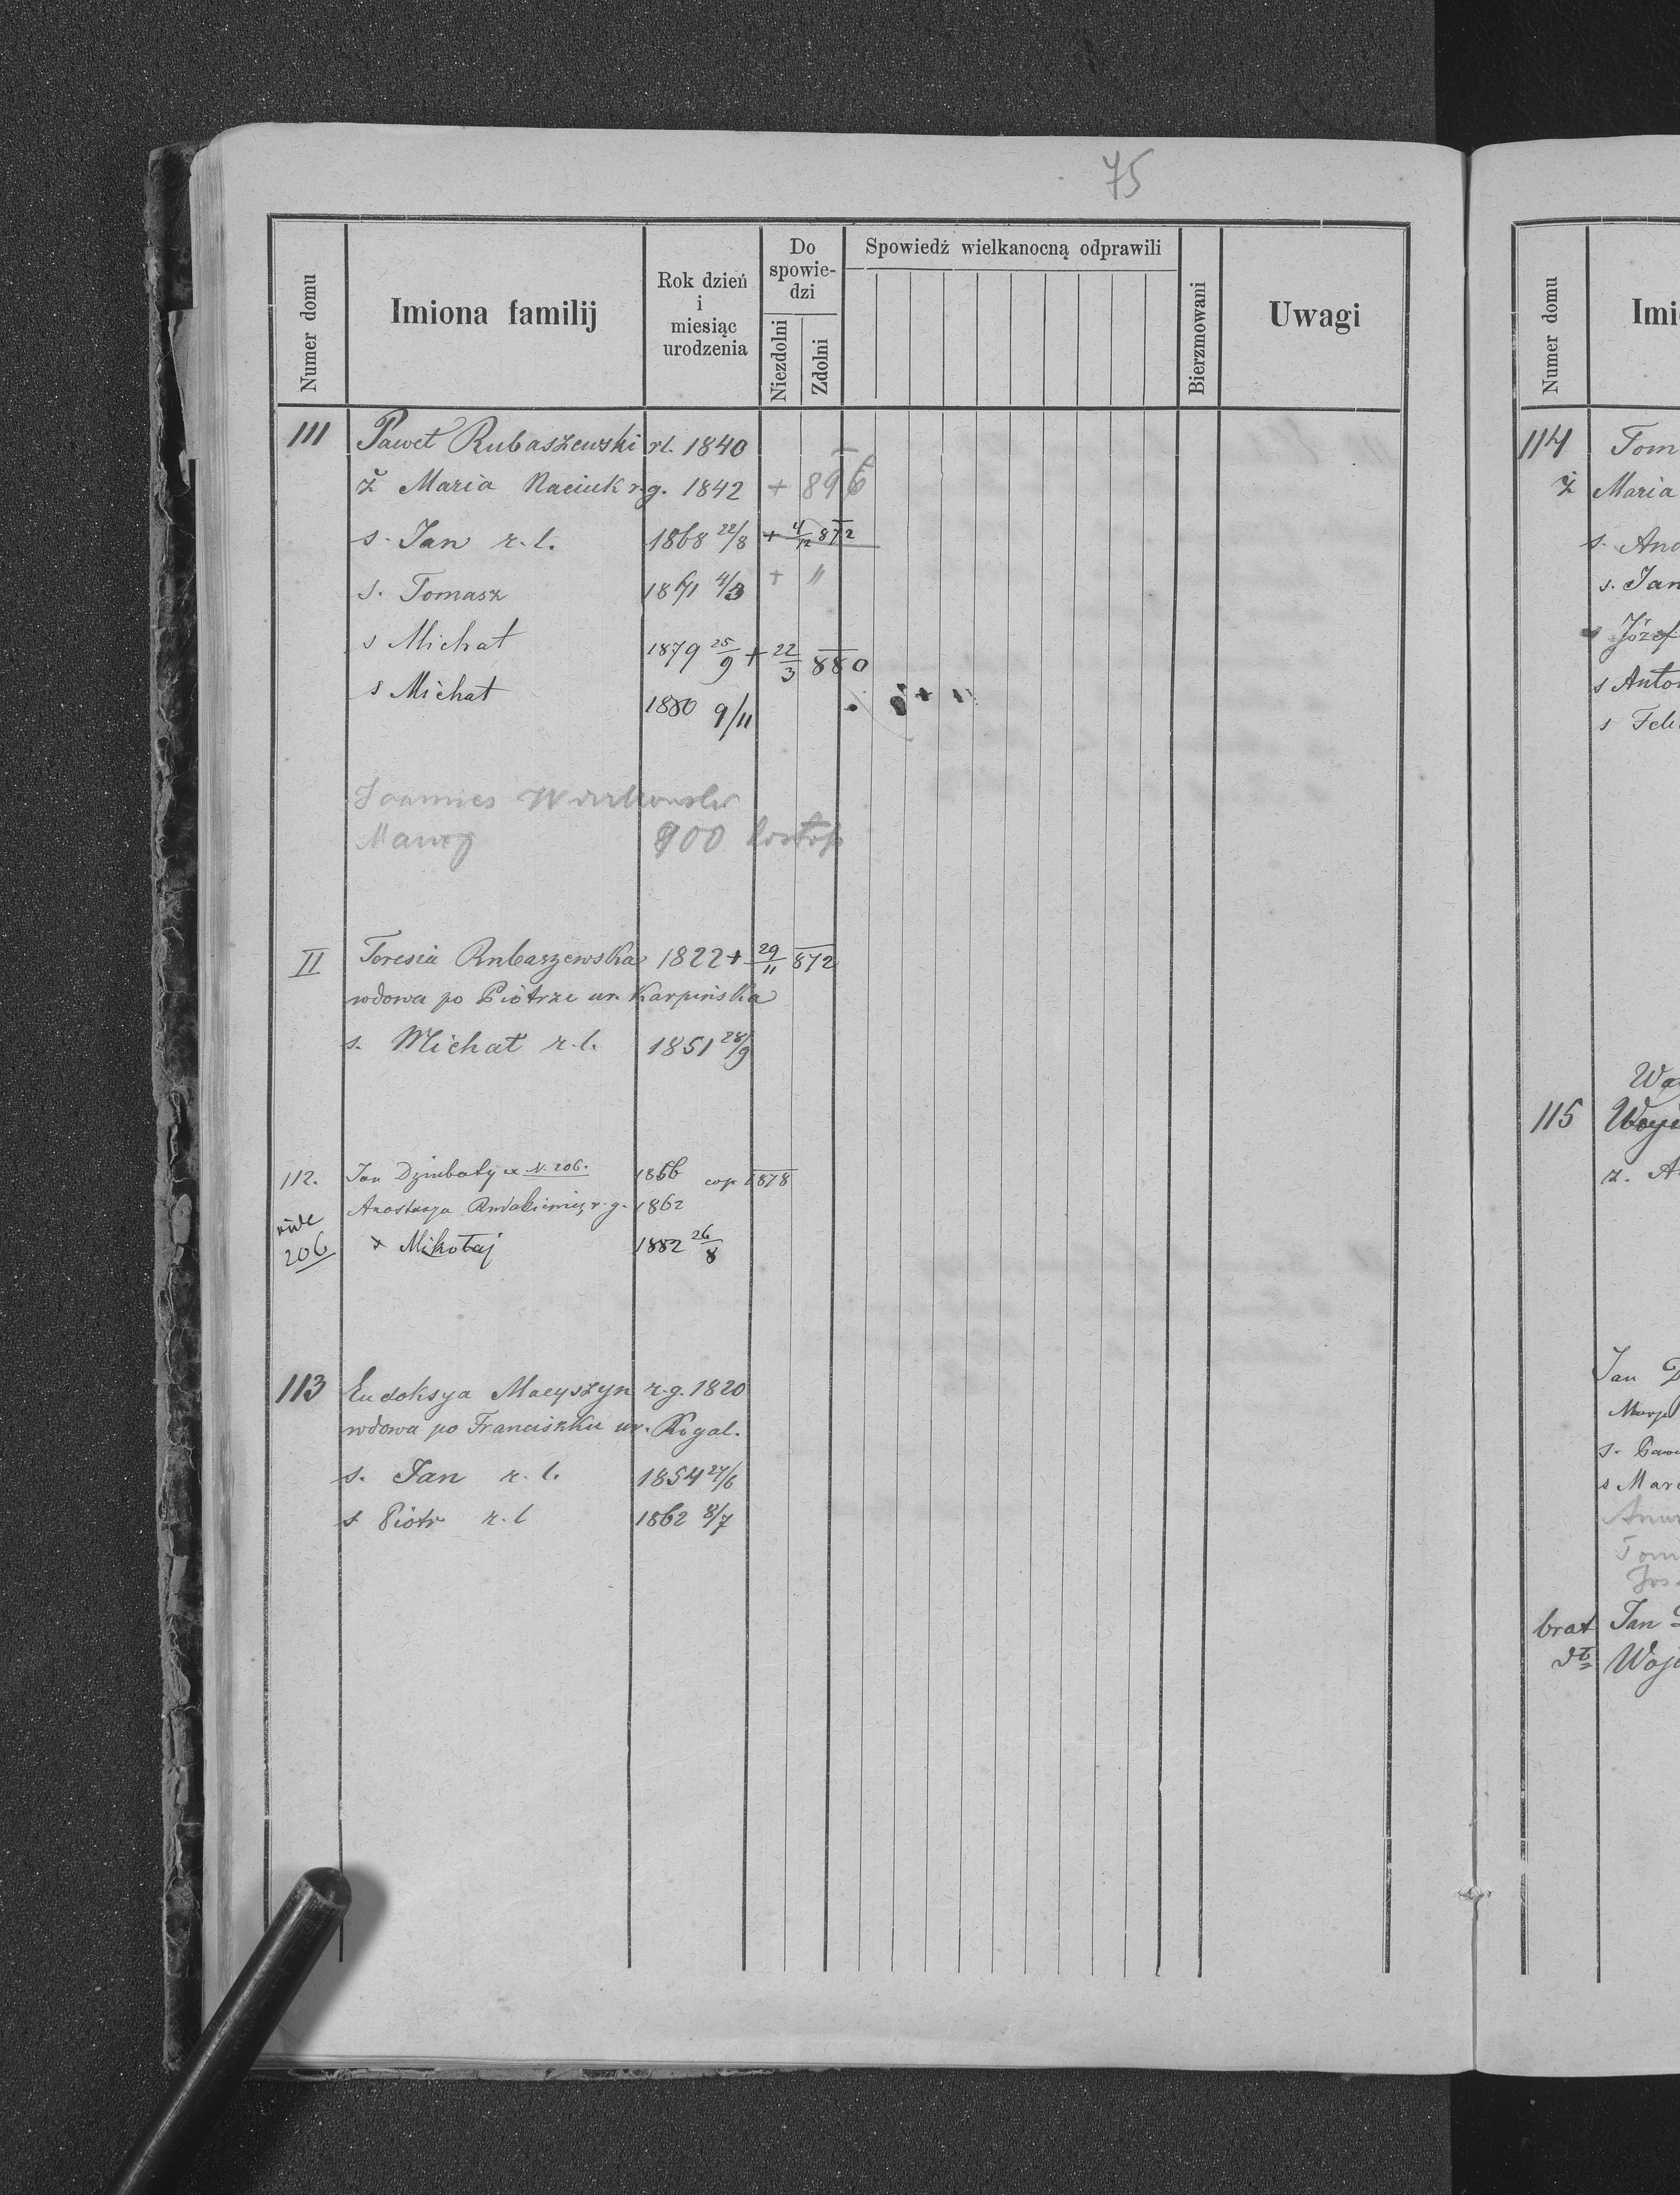 75
Numer domu
Imiona familij
Rok dzień
i
miesiąc
urodzenia
Do
spowie-
dzi
Niezdolni
Zdolni
Spowiedź wielkanocną odprawili
Bierzmowani
Uwagi
111 Paweł Rubaszewski rl. 1840
ż Maria Naciuk r.g. 1842 + 896
s. Jan r. l. 1868 22/8 + 4/12 872
s. Tomasz 1871 4/3 + "
s Michał 1879 25/9 + 22/3 880
s Michał 1880 9/11
Joannes
900
II Teresia Rubaszewska 1822 + 29/11 872
wdowa po Piotrze ur. Karpińska
s. Michał r.l. 1851 28/9
112. Jan Dziubaty ex N. 206. 1856 cop. 1878
r.g. 1862
vide
206 s Mikołaj 1882 26/8
113 Eudoksya Macyszyn r.g. 1820
wdowa po Franciszku ur. Rogal.
s. Jan r. l. 1854 27/6
s Piotr r. l 1862 8/7
Numer domu
Imi
114 Tom
ż Maria
s. And
s. Jan
Józef
s Anto
s Feli
115
z. A
Jan D
s Mar
Tom
Jos
brat Jan
Woj